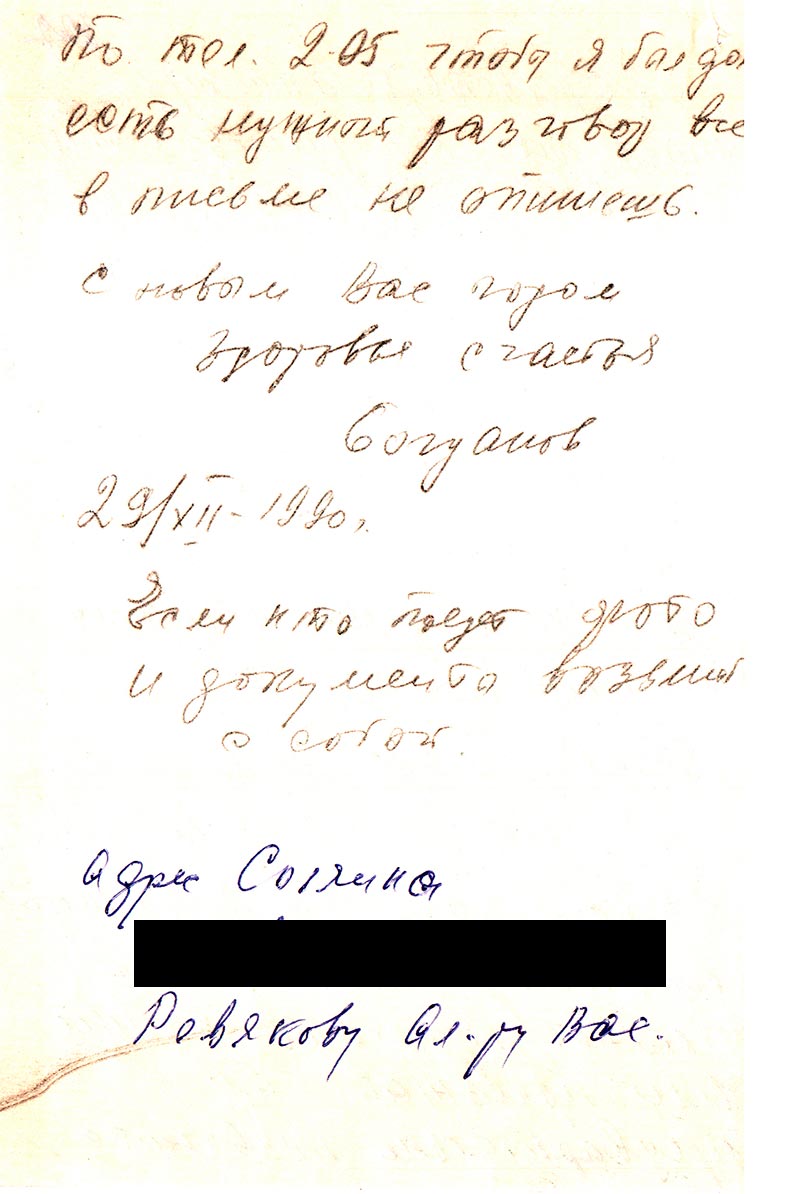 По тел. 2-05 чтобы я был дом
есть нужный разговор все
в письме не опишешь.
С новым Вас годом
здоровья счастья
Богданов
29/XII-1990г.
Если кто поедет фото
и документы возьмит
с собой.
Адрес
Ревякову Ал-ру Вас.